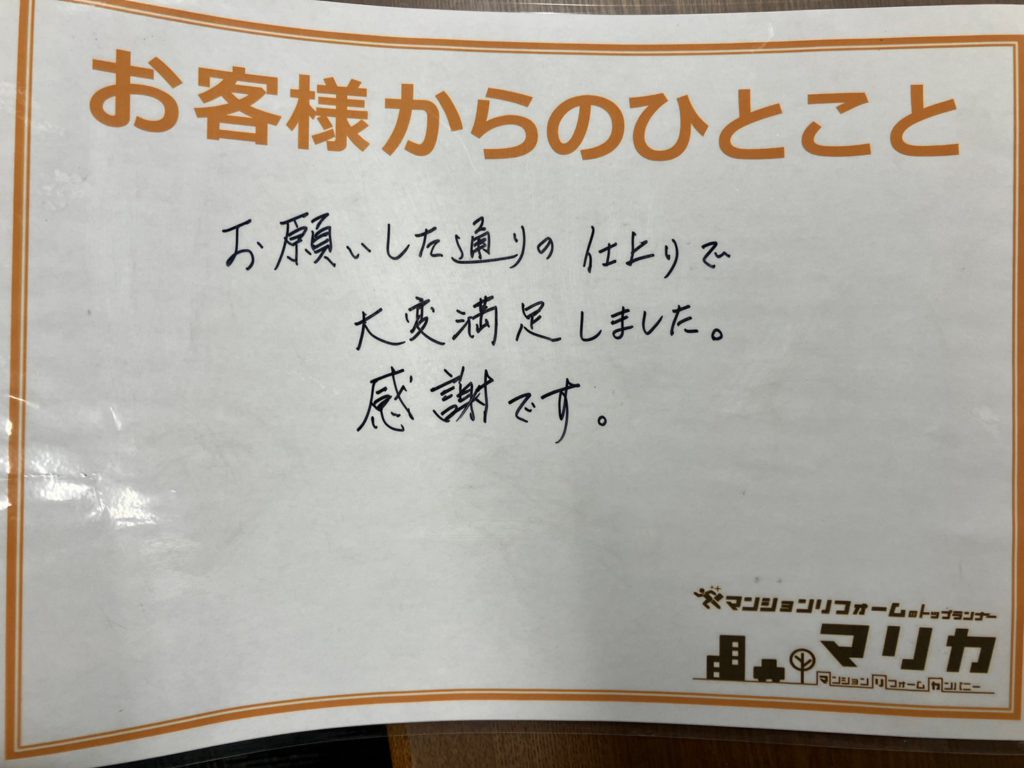 お客様からのひとこと
お願いした通りの仕上りで
大変満足しました。
感謝です。
マンションリフォームのトップランナー
マリカ
マンションリフォームカンパニー